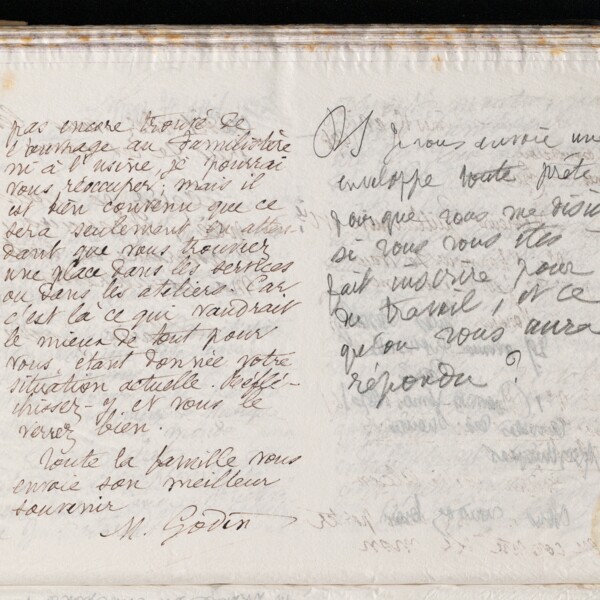 pas encore trouvé de
l'ouvrage au familistère
ni à l'usine je pourrai
vous réoccuper; mais il
est bien convenu que ce
sera seulement en atten
dant que vous trouviez
une place dans les services
ou dans les ateliers. Car
c'est là ce qui vaudrait
le mieux de tout pour
vous, étant donnée votre
situation actuelle. Réflé-
chissez-y et vous le
verrez bien.
Toute la famille vous
envoie son meilleur
souvenir
M. Godin
PS Je vous envoie une
enveloppe toute prête
pour que vous me disiez
si vous vous êtes
fait inscrire pour
du travail, et ce
qu'on vous aura
répondu?